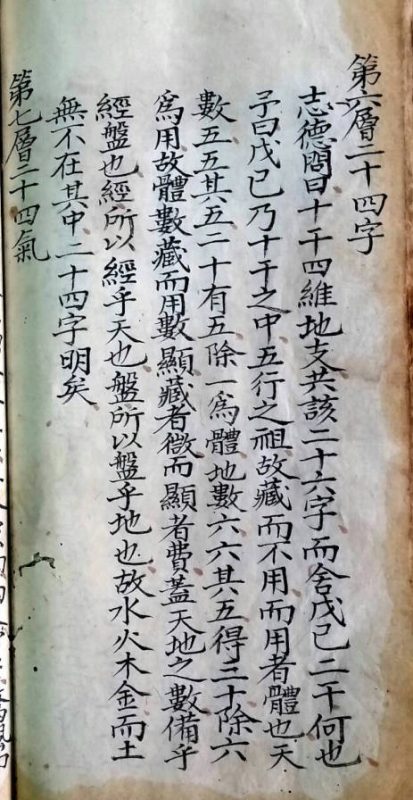 第六層二十四字
志德問曰十干四維地支共該二十六字而舍戊己二干何也
子曰戊己乃十干之中五行之祖故藏而不用而用者體也天
數五五其五二十有五除一為體地數六六其五得三十除六
為用故體數藏而用數顯藏者微而顯者費蓋天地之數備乎
經盤也經所以經乎天也盤所以盤乎地也故水火木金而土
無不在其中二十四字明矣
第七層二十四氣